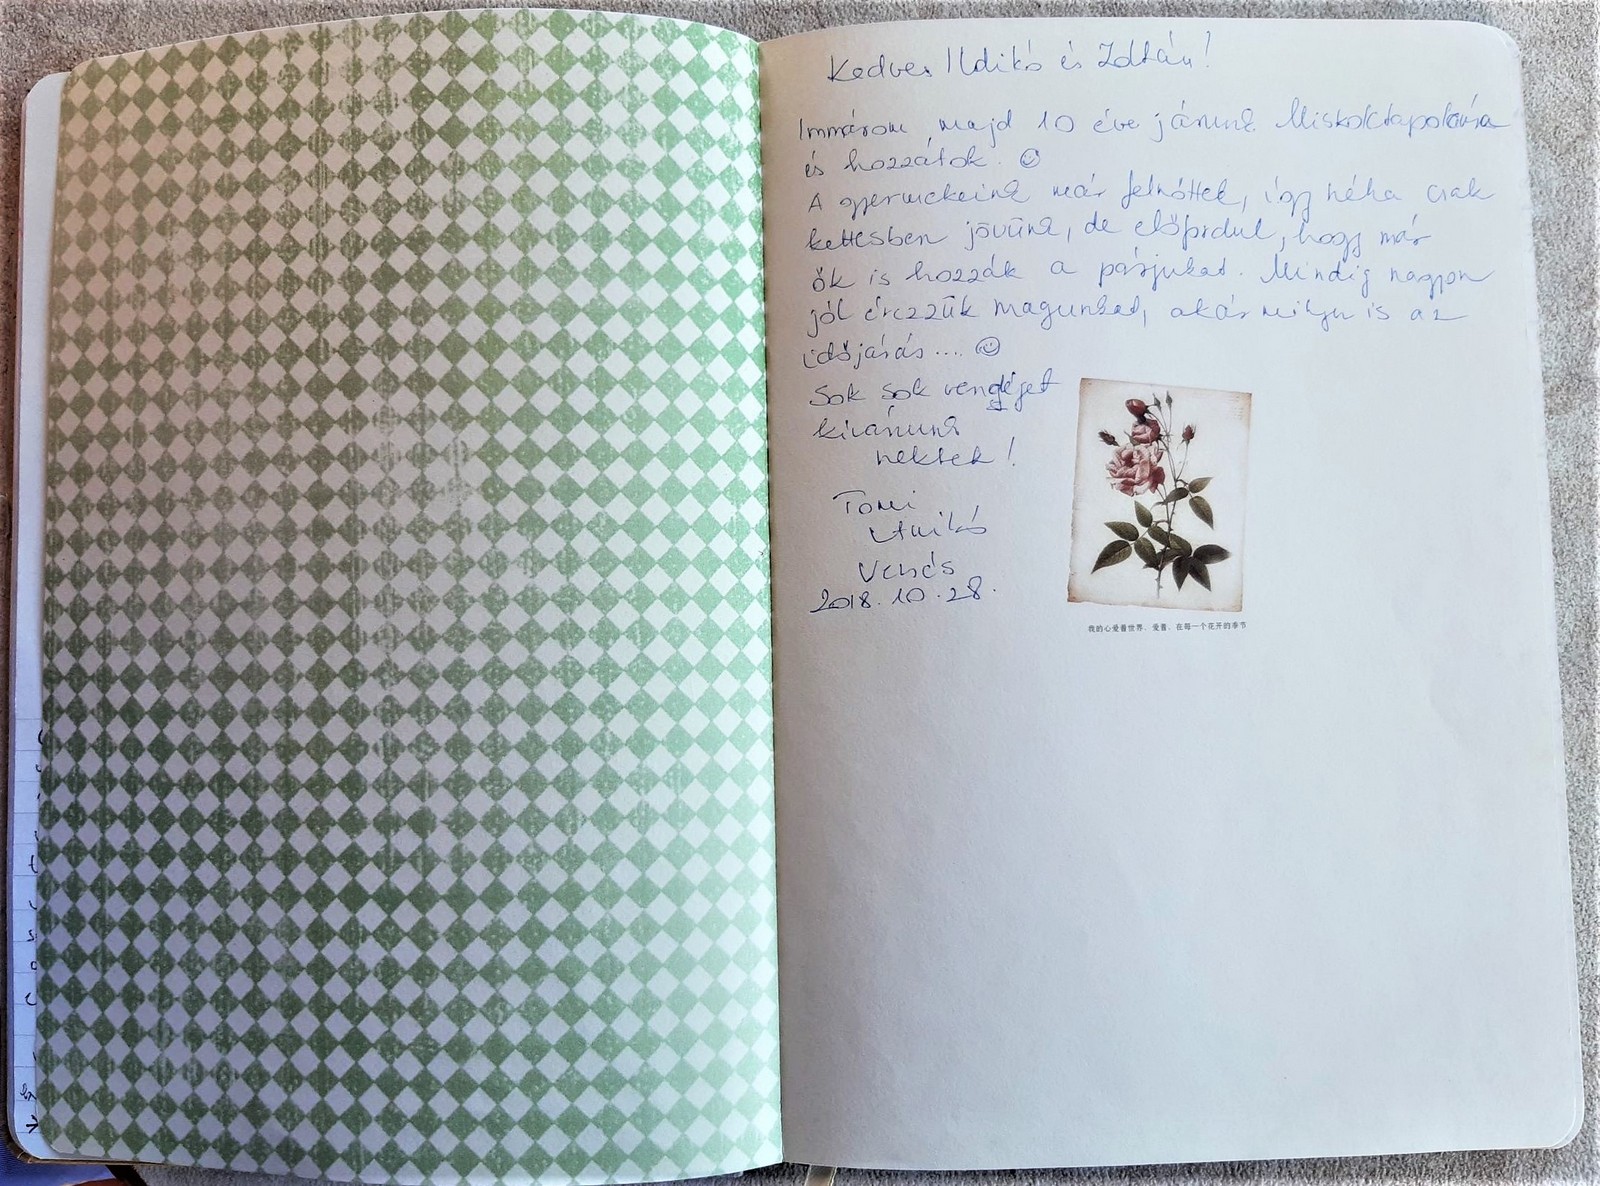 Kedves Ildikó és Zoltán!
Immárom majd 10 éve járunk Miskolctapolcára
és hozzátok. ☺
A gyermekeink már felnőttek, így néha csak
kettesben jövünk, de előfordul, hogy már
ők is hozzák a párjukat. Mindig nagyon
jól érezzük magunkat, akármilyen is az
időjárás.... ☺
Sok sok vendéget
kívánunk
nektek!
Tomi
Anikó
Vecsés
2018.10.28.
我的心爱着世界，爱着，在每一个花开的季节